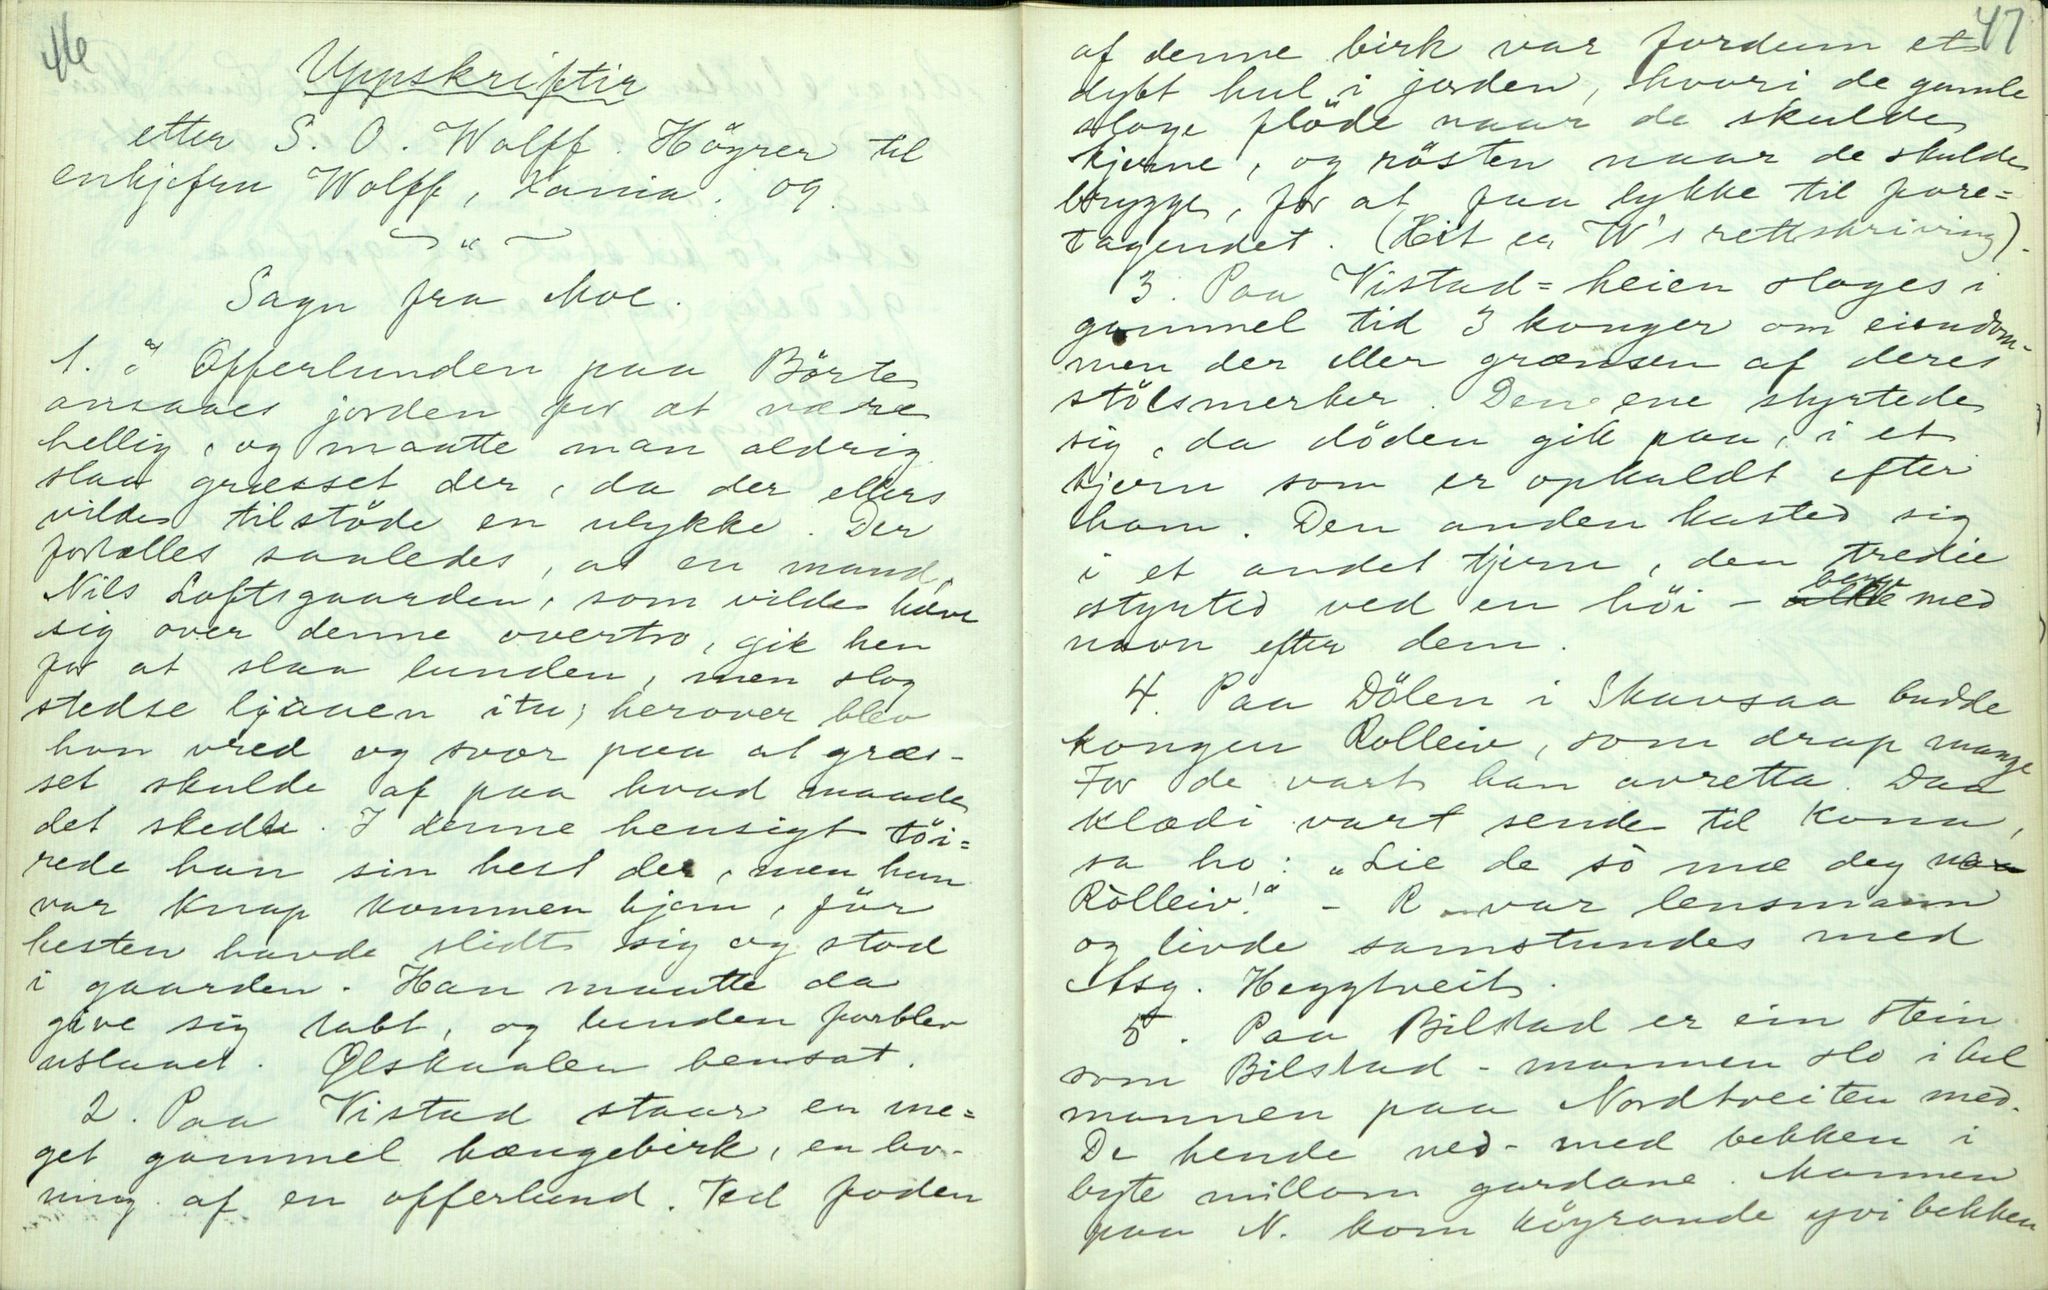 46
Uppskriftir
etter S. O. Wolff. Höyrer til
enkjefru Wolff, Xania. og
~ " ~
Sagn fra Moe.
1. I Offerlunden paa Börte
ansaaes jorden for at være
hellig, og maatte man aldrig
slaa græsset der, da der ellers
vilde tilstöde en ulykke. Der
fortælles saaledes, at en mand,
Nils Loftsgaarden, som vilde hæve
sig over denne overtro, gik hen
for at slaa lunden, men slog
stedse ljaaen itu; herover blev
han vred og svor paa at græs-
set skulde af paa hvad maade
det skede. I denne hensigt töi=
rede han sin hest der, men han
var knap kommen hjem, för
hesten havde slidt sig og stod
i gaarden. Han maatte da
give sig tabt, og lunden forblev
uslaaet. Ølskaalen bensat.
2. Paa Vistad staar en me=
get gammel hængebirk, en lev-
ning af en offerlund. Ved foden
47
af denne birk var fordum et
dybt hul i jorden, hvori de gamle
sloge flöde naar de skulde
kjerne, og rösten naar de skulde
brygge, for at faa lykke til fore=
tagendet. (Hit er W's rettskriving).
3. Paa Vistad=heien sloges i
gammel tid 3 konger om eiendom-
men der eller grænsen af deres
stölsmerker. Den ene styrtede
sig, da döden gik paa, i et
tjern som er opkaldt efter
ham. Den anden kasted sig
i et andet tjern, den tredie
styrted ved en höi - berge med
navn efter dem.
4. Paa Dölen i Skavsaa budde
kongen Rolleiv, som drap mange
For de vart han avretta. Daa
klædi vart sende til kona,
sa ho: "Lie de so mæ deg
Rolleiv!" - R. var lensmann
og livde samstundes med
Asg. Heggtveit.
5. Paa Bilstad er ein stein
som Bilstad-mannen slo i hel
mannen paa Nordtveiten med.
De hende ned-med bekken i
byte millom gardane. Mannen
paa N. kom köyrande yvi bekken